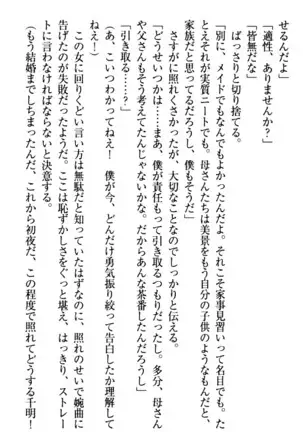 せるんだよ」
「適性、ありませんか?」
「皆無だな」
ばっさりと切り捨てる。
「別に、メイドでもなんでもよかったんだよ。それこそ家事見習いって名目でも。た
とえそれが実質ニートでも。母さんたちは美景をもう自分の子供のようなもんだと、
家族だと思ってるだろうし、僕もそうだ」
さすがに照れくさかったが、大切なことなのでしっかりと伝える。
「どうせいつかは……まあ、僕が責任もって引き取るつもりだったし。多分、母さん
や父さんもそう考えてたんじゃないかな。だからあんな茶番したんだろうし」
「引き取る……?」
(あ、こいつわかってねえ! 僕が今、どんだけ勇気振り絞って告白したか理解して
ねえ!)
この女に回りくどい言い方は無駄だと知っていたはずなのに、照れのせいで婉曲に
告げたのが失敗だったようだ。ここは恥ずかしさをぐっと堪え、はっきり、ストレー
トに言わなければならないと決意する。
(もう結婚までしちまったんだ、これから初夜だ、この程度で照れてどうする千明!